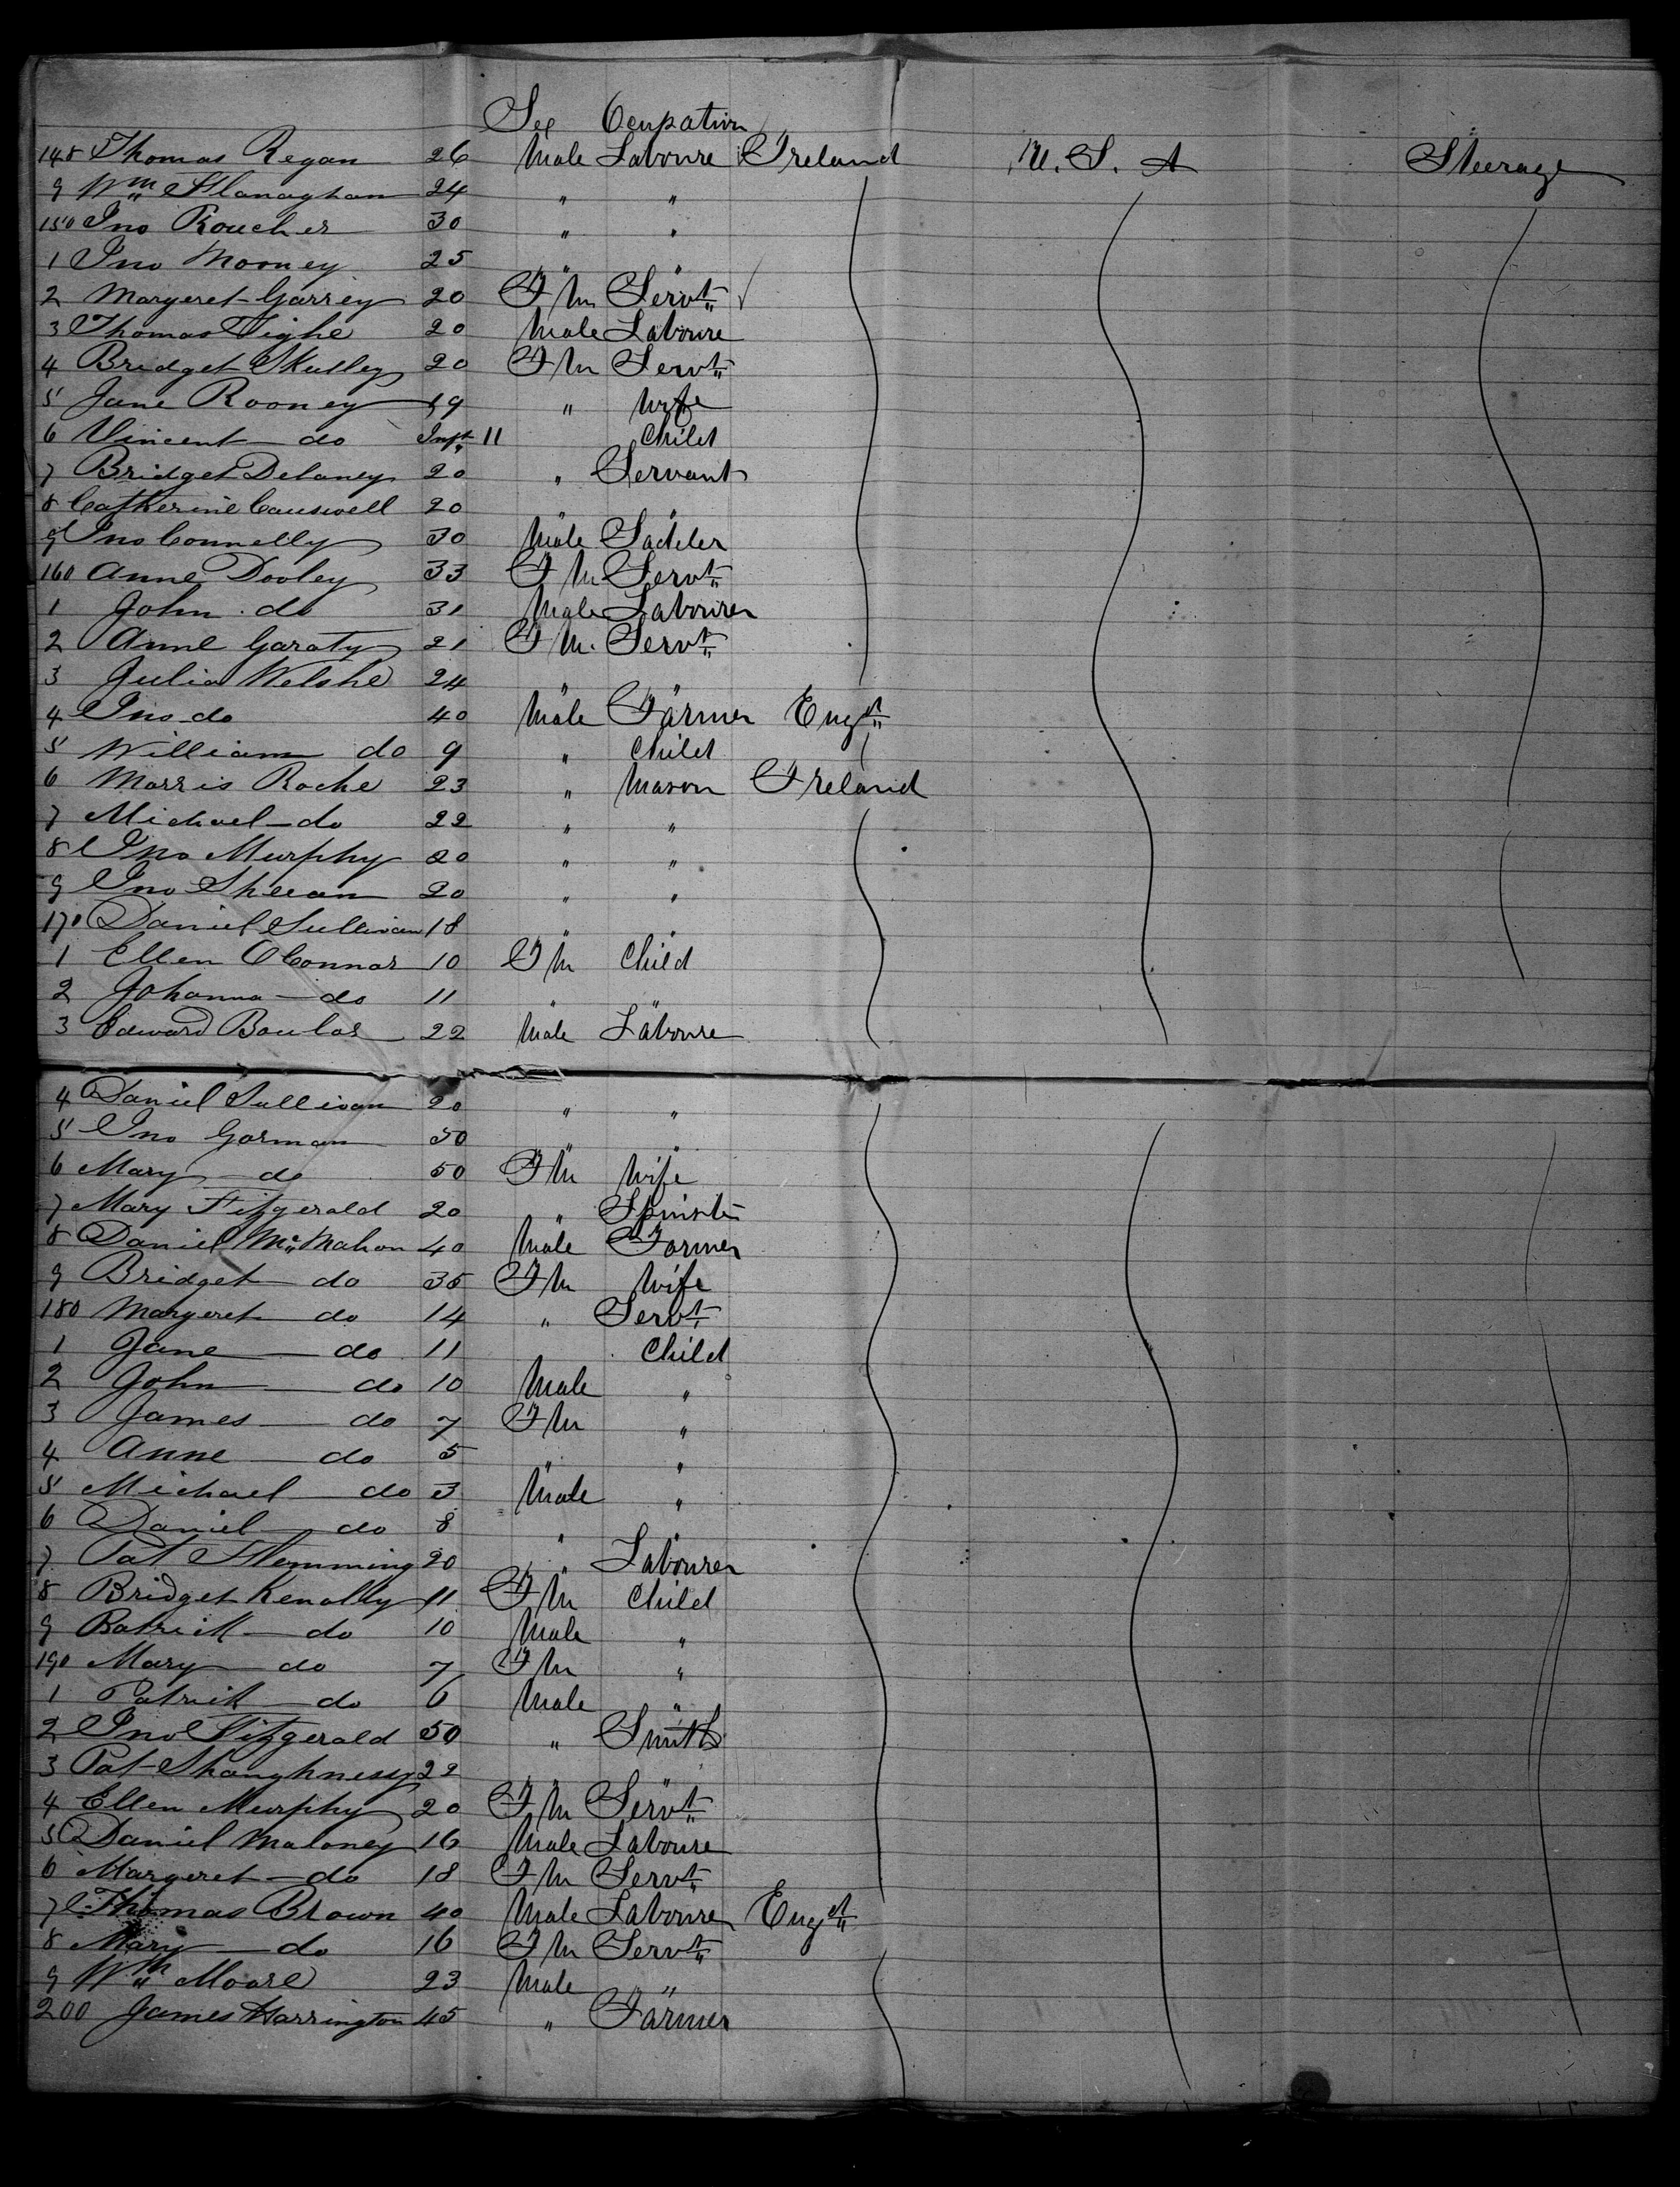 Sex Ocupation
148 Thomas Regan 26 Male Laboure Ireland U. S. A Steerage
9 Wm Flanaghan 24 " "
150 Jno Roucher 30 " "
1 Jno Mooney 25 " "
2 Margeret Garrey 20 Fm Servt
3 Thomas Tighe 20 Male Laboure
4 Bridget Skulley 20 Fm Servt
5 Jane Rooney 19 " Wife
6 Vincent do Inft 11 Child
7 Bridget Delaney 20 " Servant
8 Catherine Causwell 20 " "
9 Jno Connelly 30 Male Sadeler
160 Anne Dooley 33 Fm Servt
1 John do 31 Male Labourer
2 Anne Garaty 21 Fm. Servt
3 Julia Welshe 24 " "
4 Jno do 40 Male Farmer Engd
5 William do 9 " Child
6 Morris Roche 23 " Mason Ireland
7 Michael do 22 " "
8 Jno Murphy 20 " "
9 Jno Sheean 20 " "
170 Daniel Sullivan 18 " "
1 Ellen OConnor 10 Fm Child
2 Johanna do 11 " "
3 Edward Boulas 22 Male Laboure
4 Daniel Sullivan 20 " "
5 Jno Gorman 50 " "
6 Mary do 50 Fm Wife
7 Mary Fitzgerald 20 " Spinster
8 Daniel Mc Mahon 40 Male Farmer
9 Bridget do 35 Fm Wife
180 Margeret do 14 " Servt
1 Jane do 11 Child
2 John do 10 Male "
3 James do 7 Fm "
4 Anne do 5 " "
5 Michael do 3 Male "
6 Daniel do 8 " "
7 Pat Flemming 20 " Labourer
8 Bridget Kenally 11 Fm Child
9 Patrick do 10 Male "
190 Mary do 7 Fm "
1 Patrick do 6 Male "
2 Jno Fitzgerald 50 " Smith
3 Pat Shaughnessy 22 " "
4 Ellen Murphy 20 Fm Servt
5 Daniel Maloney 16 Male Laboure
6 Margeret do 18 Fm Servt
7 Thomas Brown 40 Male Labourer Engd
8 Mary do 16 Fm Servt
9 Wm Moore 23 Male "
200 James Harrington 45 " Farmer